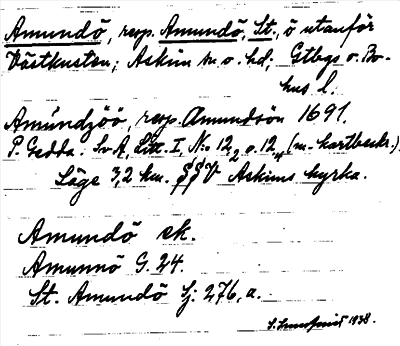 Amundö, resp. Amundö, St., ö utanför
Västkusten; Askim sn o. hd; Gtbgs o. Bo-
hus l.
Amúndzöö, resp. Amundsöön 1691.
P. Gedda. Sv A, Litt. I, No 12, 2 o. 12, (m. kartbeskr.).
Läge 3,2 km. SSV Askims kyrka.
Amundö ek.
Amunnö G. 24.
St. Amundö Sj. 276, a.
1938.